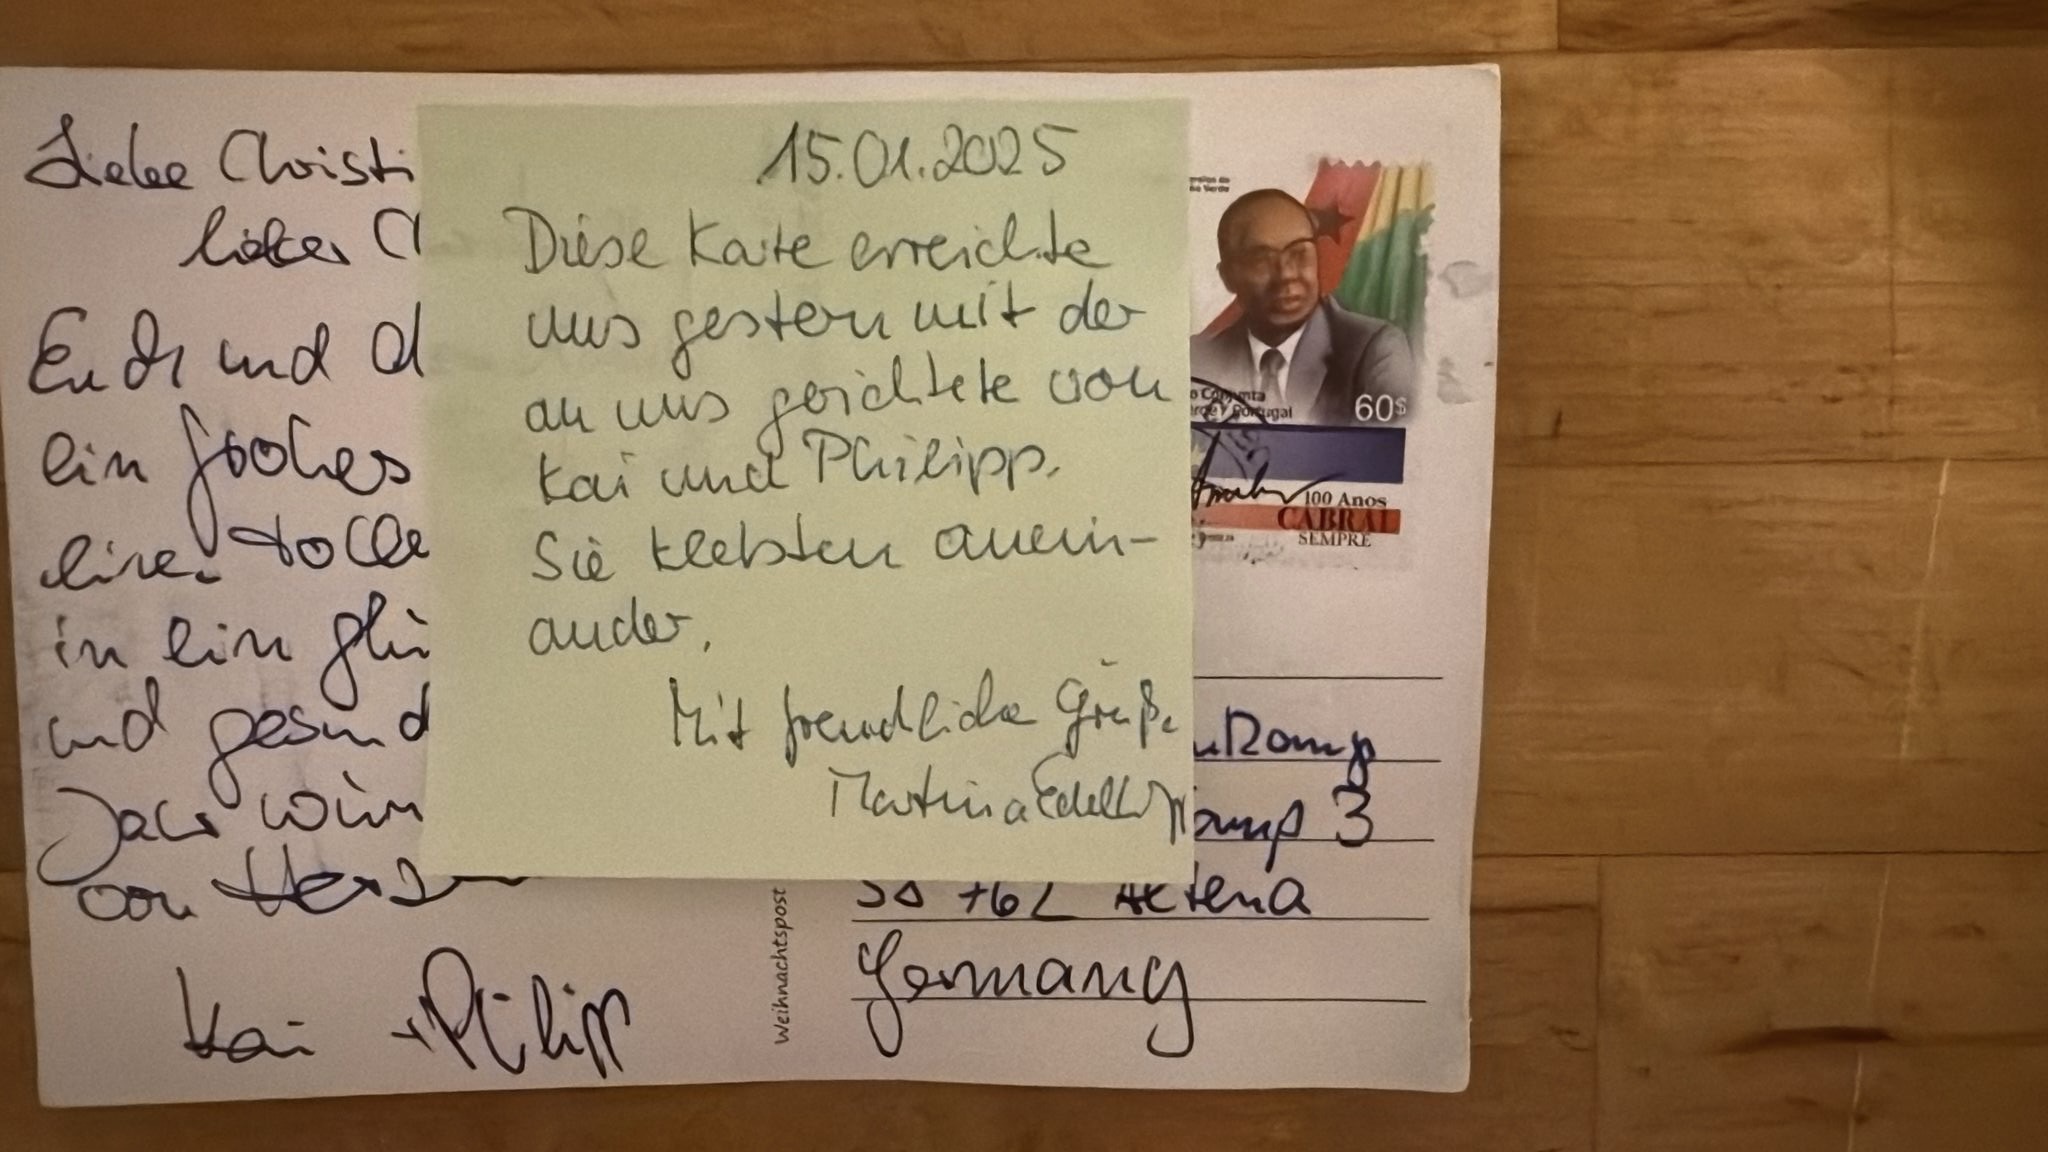 Liebe Christi
lieber Ch
Euch und d
ein frohes
eine tolle
in ein glü
und gesund
Jahr wün
von Herz
Kai + Philipp
15.01.2025
Diese Karte erreichte
uns gestern mit der
an uns gerichtete von
Kai und Philipp.
Sie klebten anein-
ander.
Mit freundliche Grüße
Martina
60$
Portugal
100 Anos
CABRAL
SEMPRE
Weihnachtspost
kamp
kamp 3
Altena
Germany